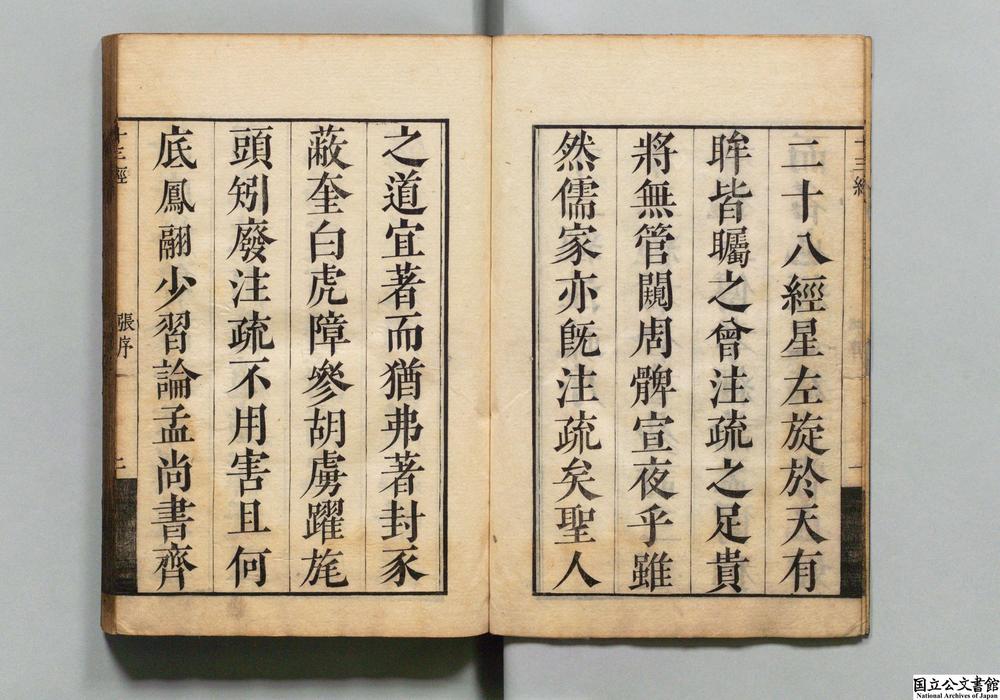 二十八經星左旋於天有
眸皆矚之曾注疏之足貴
將無管闚周髀宣夜乎雖
然儒家亦旣注疏矣聖人
之道宜著而猶弗著封豕
蔽奎白虎障參胡虜躍旄
頭矧廢注疏不用害且何
底鳳翮少習論孟尚書齊
十三經
張序
二
国立公文書館
National Archives of Japan